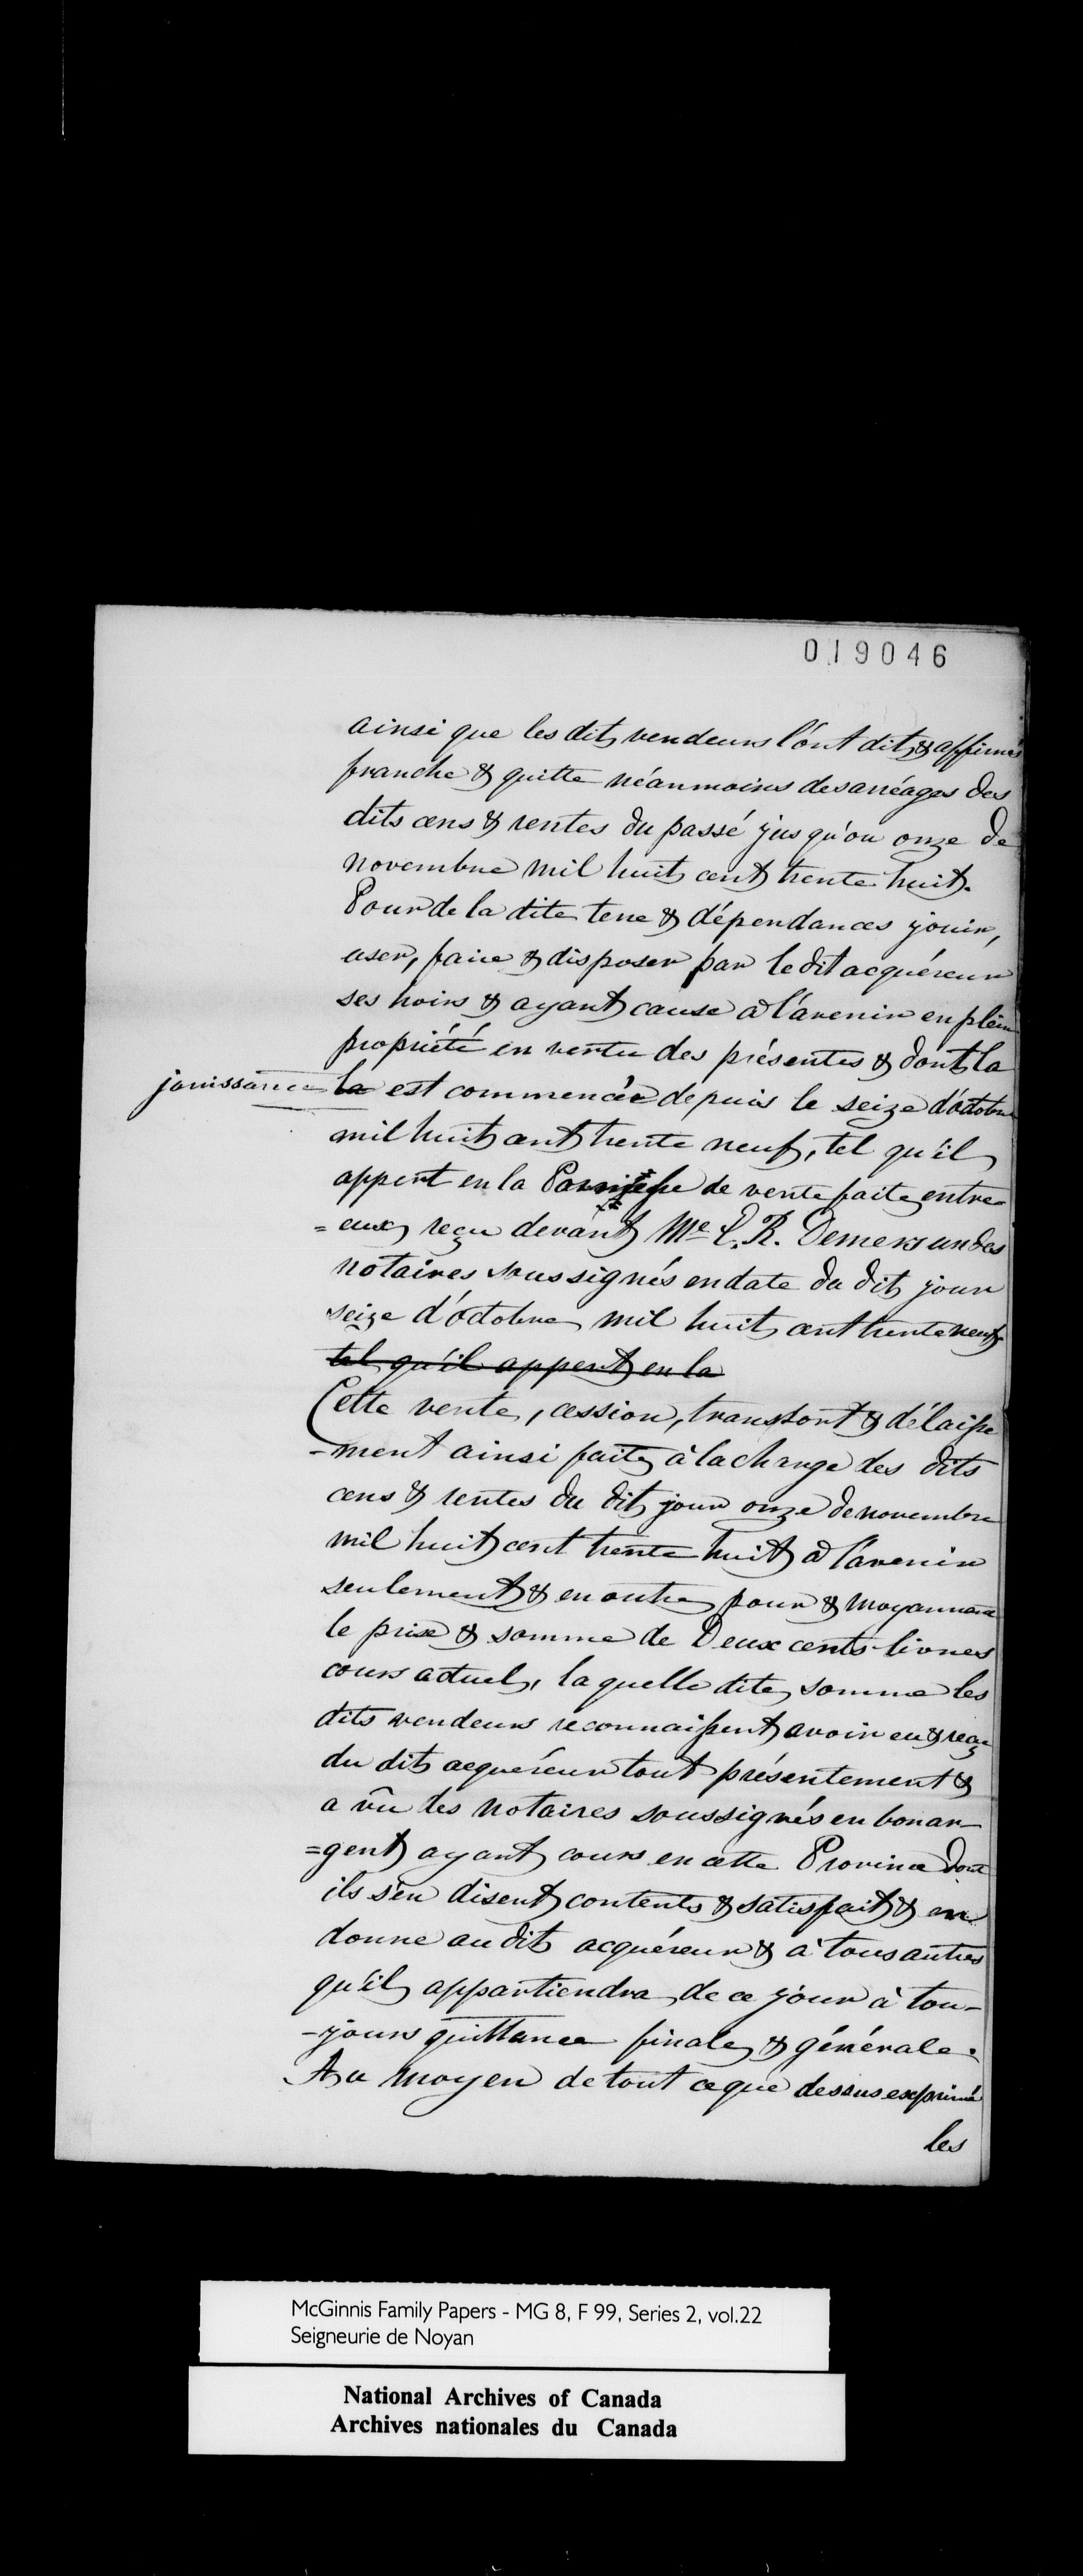 019046
ainsi que les dits vendeurs l'ont dit & affirmés
franche & quitte néanmoins des aréages des
dits cens & rentes du passé jusqu'au onze de
novembre mil huit cent trente huit.
Pour de la dite terre & dépendances jouir,
user, faire & disposer par le dit acquéreur
ses hoirs & ayant cause a l'avenir en plein
propriété en vertu des présentes & dont la
jouissance la est commencée depuis le seize d'octobre
mil huit cent trente neuf, tel qu'il
appert en la de vente faite entre
=eux, reçu devant Me R. Demers un des
notaires soussignés en date du dit jour
seize d'octobre mil huit cent trente neuf
tel qu'il appert en la
Cette vente, cession, transport & délaisse
-ment ainsi faite à la charge des dits
cens & rentes du dit jour onze de novembre
mil huit cent trente huit a l'avenir
seulement & en outre pour & moyennant
le prise & somme de Deux cents livres
cours actuel, la quelle dite somme les
dits vendeurs reconnaissent avoir eu & reçu
du dit acquéreur tout présentement &
a vû des notaires soussignés en bon ar-
=gent ayant cours en cette Province dont
ils s'en disent contents & satisfait & en
donne au dit acquéreur & à tous autres
qu'il appartiendra de ce jour à tou-
-jours quittance finale & générale.
Au moyen de tout ce que dessus exprimé
les
McGinnis Family Papers - MG 8, F 99, Series 2, vol.22
Seigneurie de Noyan
National Archives of Canada
Archives nationales du Canada